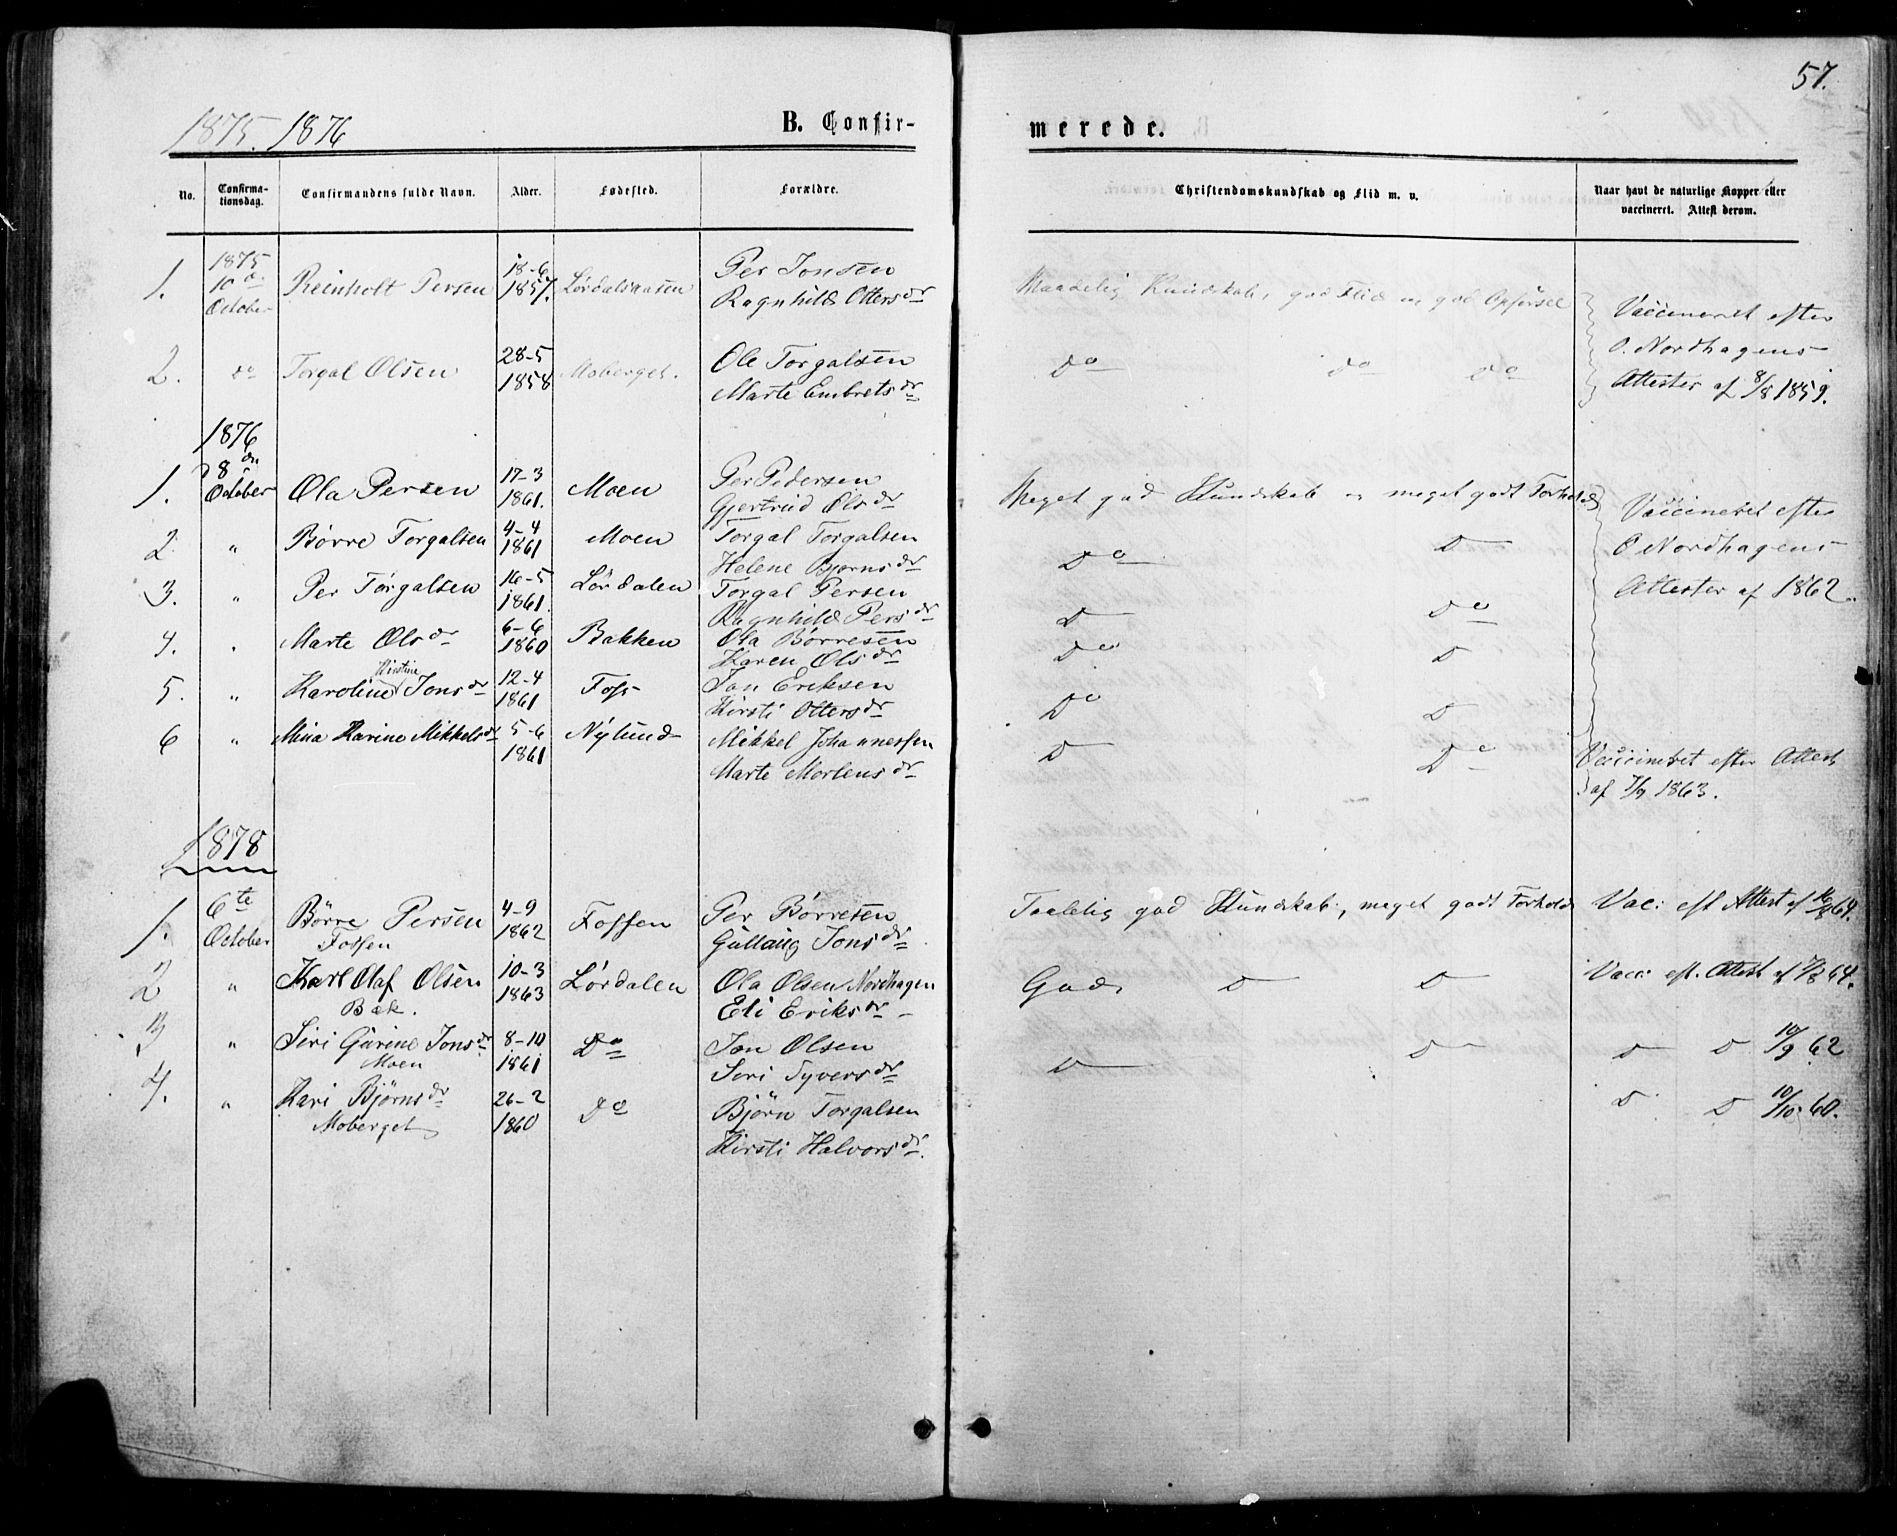 57.
1875. 1876
B. Confir-
merede.
No.
Confirma-
tionsdag.
Confirmandens fulde Navn.
Alder.
Fødested.
Forældre.
Christendomskundskab og Flid m. v.
Naar havt de naturlige Kopper eller
vaccineret. Attest derom.
1875
1. 10de October Reinholt Persen 18-6 1857. Lørdalsaasen
Per Jonsen
Ragnhild Ottersdr
Maadelig Kundskab, god Flid og god Opførsel
Vaccineret efter
O. Nordhagens
Attester af 8/8 1859.
2. do Torgal Olsen 28-5 1858 Moberget.
Ole Torgalsen
Marte Embretsdr
Do do do
1876
1. 8de October Ola Persen 17-3 1861. Moen
Per Pedersen
Gjertrud Olsdr
Meget god Kundskab og meget godt Forhold
Vaccineret efter
O Nordhagens
Attester af 1862.
2. " Børre Torgalsen 4-4 1861 Moen
Torgal Torgalsen
Helene Bjørnsdr
Do D
3. " Per Torgalsen 16-5 1861. Lørdalen
Torgal Persen
Ragnhild Persdr
D Do
4. " Marte Olsdr 6-6 1860 Bakken
Ola Børresen
Karen Olsdr
Do D
5. " Karoline Kirstine Jonsdr 12-4 1861 Foss
Jon Eriksen
Kirsti Ottersdr
Do D
6 " Mina Karine Mikkelsdr 5-6 1861 Nylund
Mikkel Johannessen
Marte Mortensdr
D Do
Vaccineret efter Attest
af 7/9 1863.
1878
1. 6te October Børre Persen Fossen 4-9 1862 Fossen
Per Børresen
Gullaug Jonsdr
Taalelig god Kundskab, meget godt Forhold
Vac: eft Attest af 64.
2 " Karl Olaf Olsen Bæk. 10-3 1863 Lørdalen
Ola Olsen Nordhagen
Eli Eriksdr
God D D
Vacc: eft. Attest af 64.
3 " Siri Gurine Jonsdr Moen 8-10 1861 Do
Jon Olsen
Siri Syversdr
D D
D D 10/9 62
4. " Kari Bjørnsdr Moberget 26-2 1860 Do
Bjørn Torgalsen
Kirsti Halvorsdr.
D D 10/10 60.